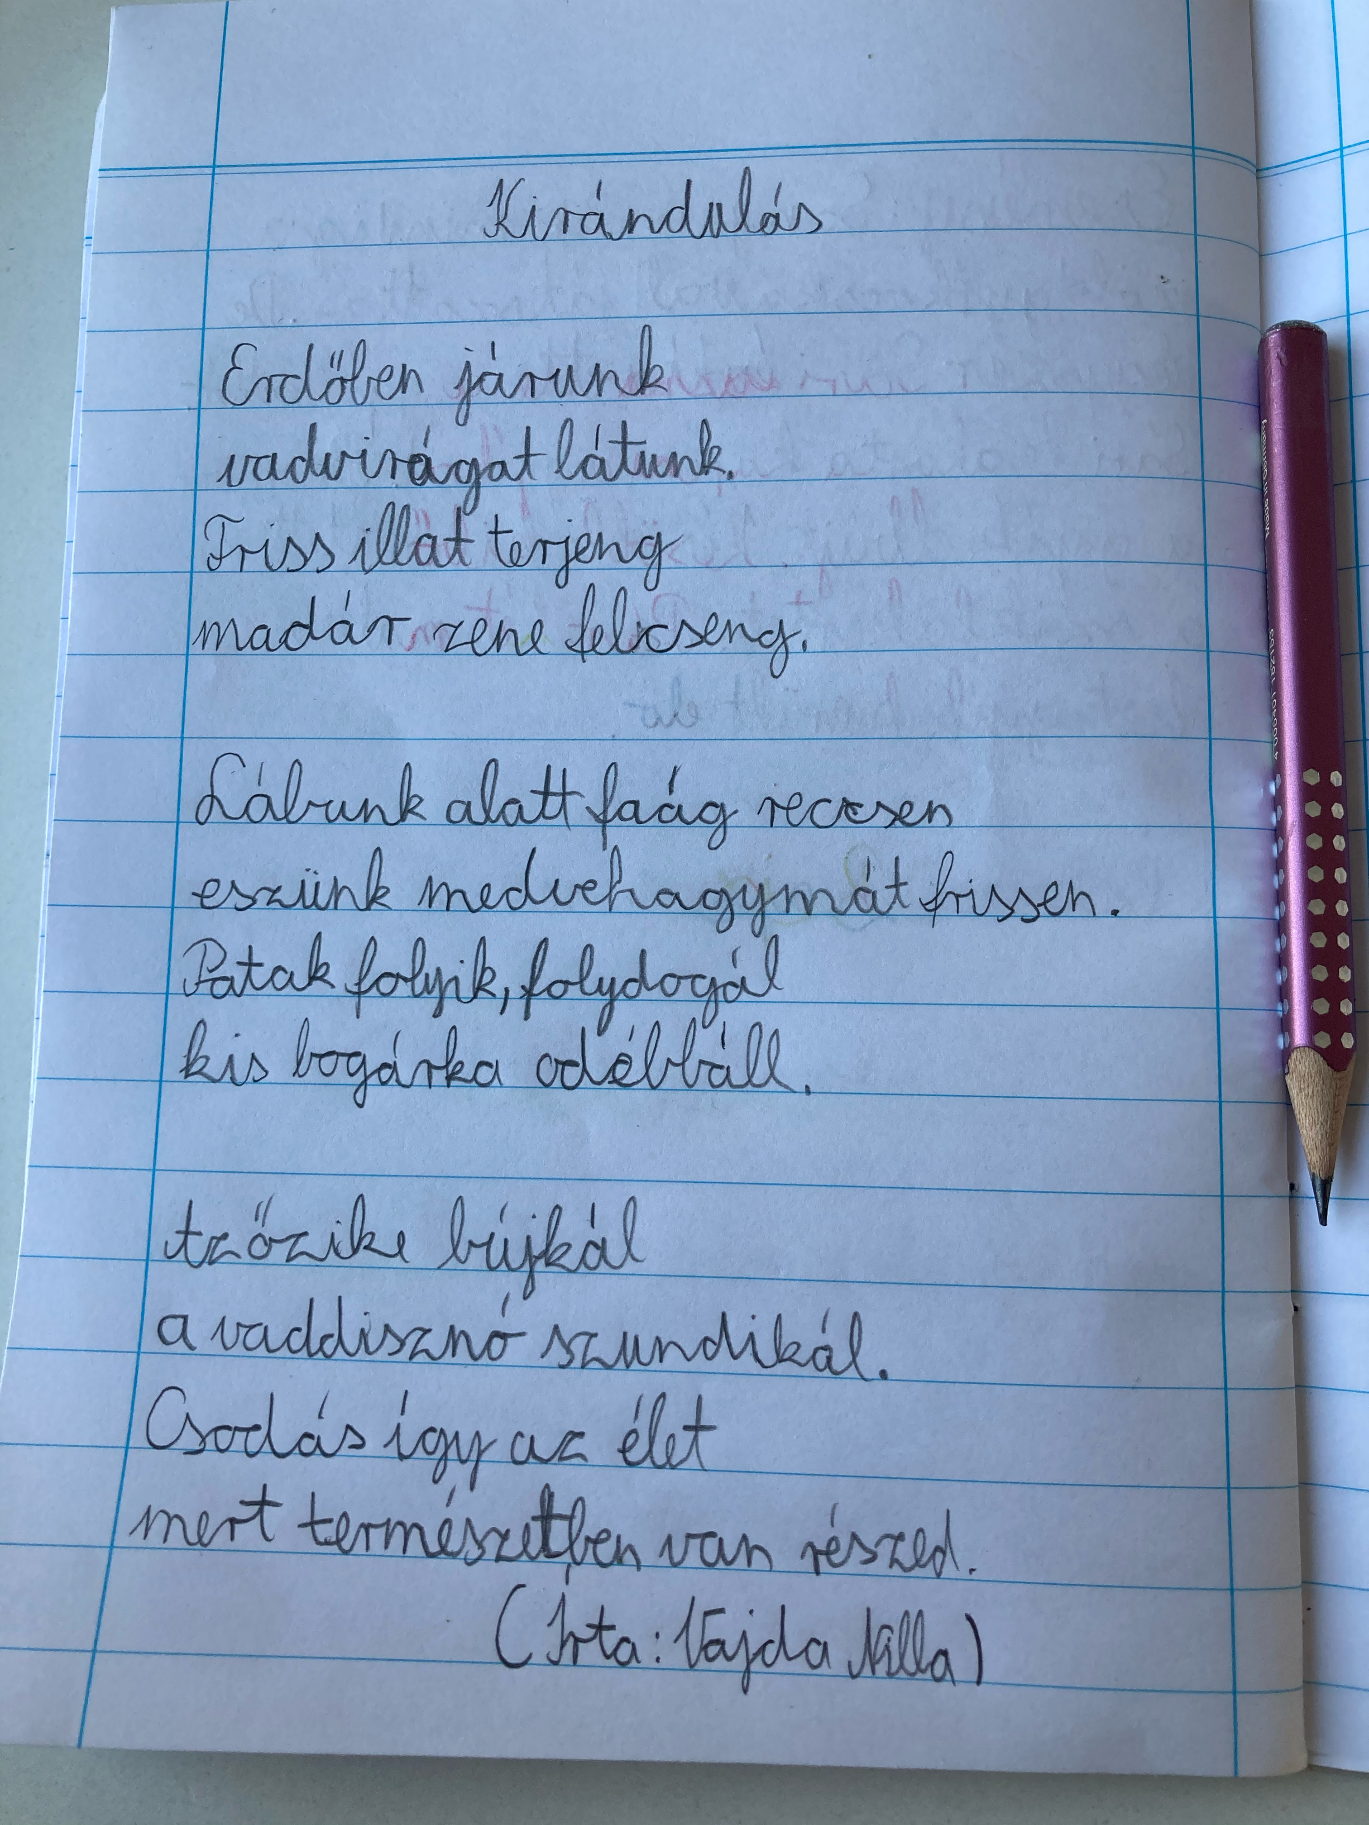 Kirándulás
Erdőben járunk
vadvirágat látunk.
Friss illat terjeng
madár zene felcseng.
Lábunk alatt faág reccsen
eszünk medvehagymát frissen.
Patak folyik, folydogál
kis bogárka odébbáll.
tzőzike bújkál
a vaddisznó szundikál.
Csodás így az élet
mert természetben van részed.
(Írta: Vajda Nilla)